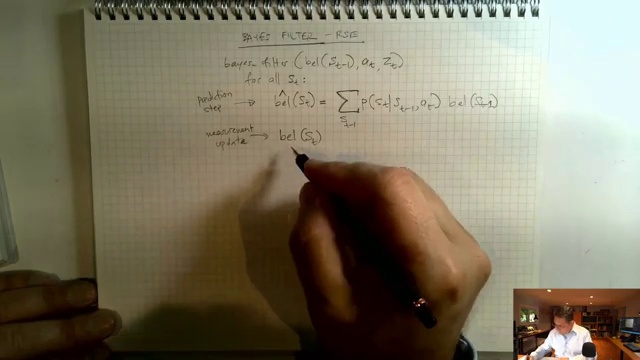 BAYES FILTER - RSE
bayes filter (bel(S_{t-1}), a_t, z_t)
for all S_t:
prediction step → bel̂(S_t) = ∑_{S_{t-1}} p(S_t | S_{t-1}, a_t) bel(S_{t-1})
measurement update → bel(S_t)